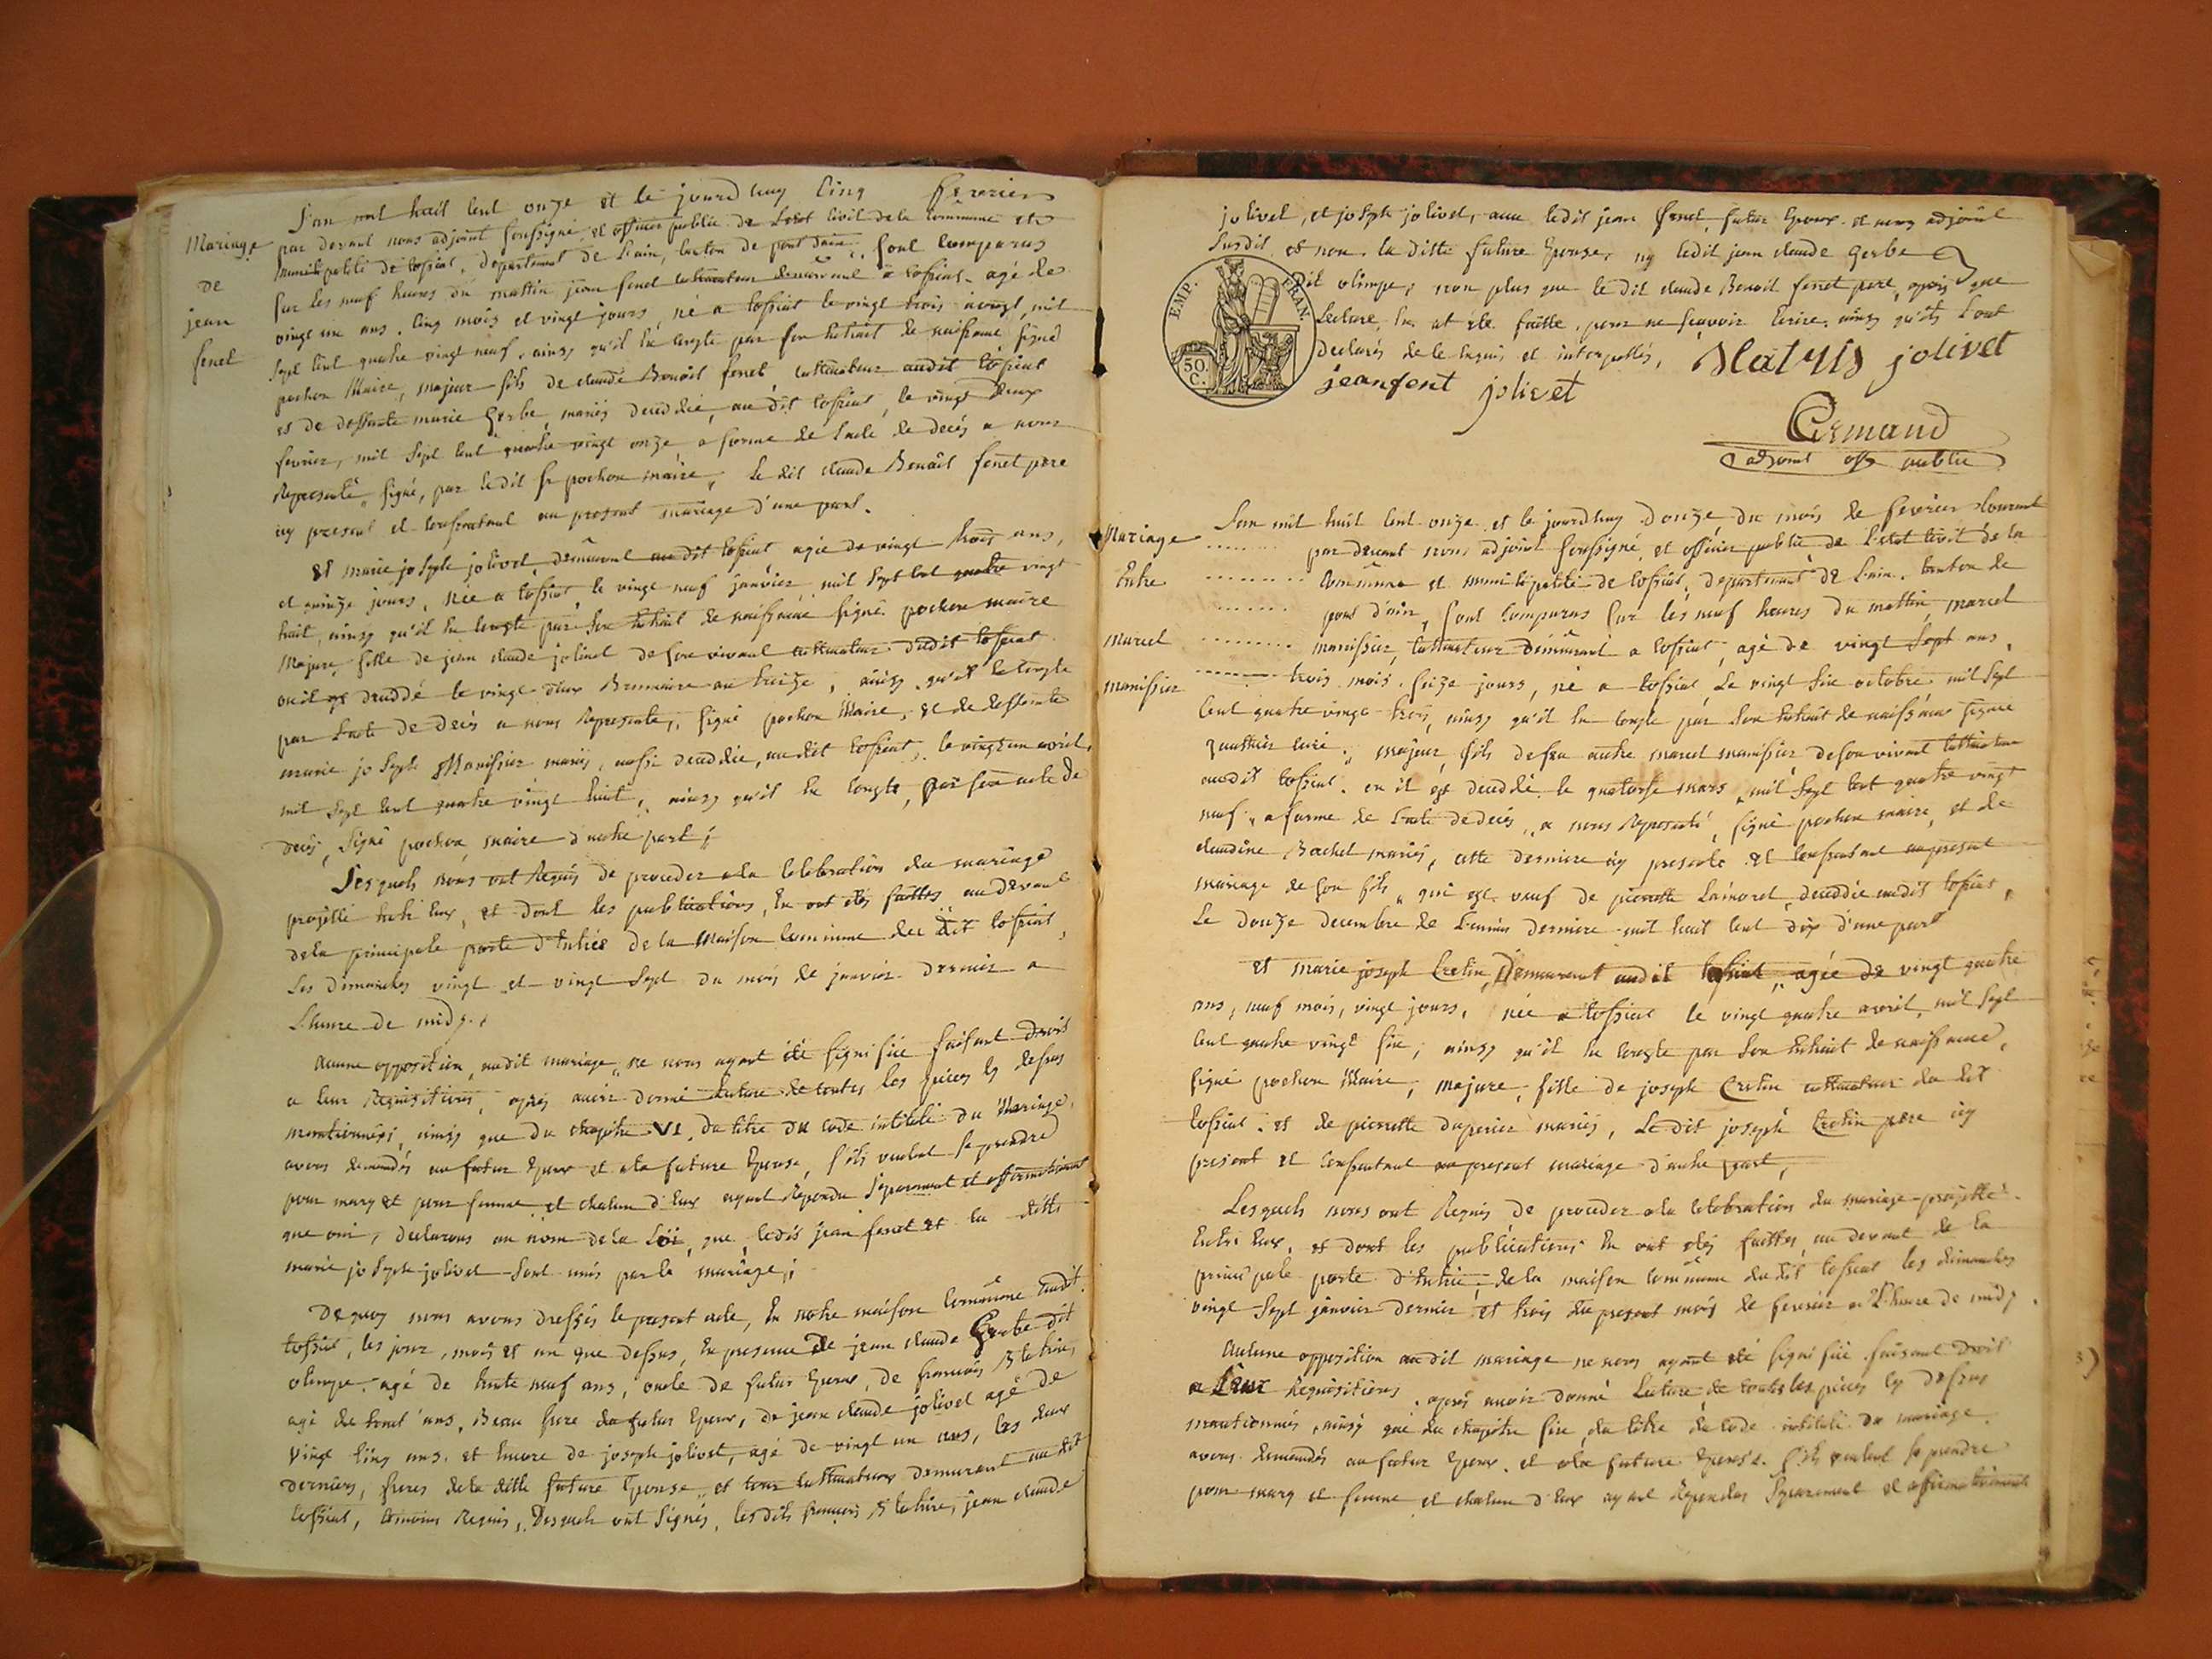 L'an mil huit cent onze et le jourd huy cinq fevrier
Mariage par devant nous adjoint soussigné et officier public de L'etat civil de la commune et
municipalité de tossiat, departement de L'ain, canton de pont dain, sont comparus
de sur les neuf heures du mattin jean fenet cultivateur demeurant a tossiat agé de
jean vingt un ans, cinq mois et vingt jours, né a tossiat le vingt trois aougt, mil
fenet sept cent quatre vingt neuf, ainsy qu'il en conste par son extrait de naissance, signé
pochon Maire, majeur fils de claude Benoit fenet cultivateur audit tossiat
et de deffunte marie Gerbe, mariés deceddée, au dit tossiat, le vingt deux
fevrier, mil sept cent quatre vingt onze, a forme de l'acte de decés a nous
Representé, signé, par le dit sr pochon maire, Le dit claude Benoit fenet pere
icy present et consentant au present mariage d'une part.
et marie joseph jolivet, demeurant au dit tossiat agée de vingt trois ans,
et quinze jours, née a tossiat, le vingt neuf janvier, mil sept cent quatre vingt
huit, ainsy qu'il en conste par son extrait de naissance signé pochon maire
Majeure, fille de jean claude jolivet de son vivant cultivateur dudit tossiat
ou il est deceddé le vingt deux Brumaire an treize, ainsy qu'il en conste
par L'acte de decés a nous Representé, signé pochon Maire, et de deffunte
marie joseph Manissier mariés, aussi deceddée, au dit tossiat, le vingt un avril,
mil sept cent quatre vingt huit, ainsy qu'il en conste, par son acte de
deces, signé pochon, maire d'autre part;
Lesquels nous ont Requis de proceder a la celebration du mariage
projetté entre eux, et dont les publications, en ont étés faittes au devant
de la principale porte d'entrée de la Maison commune du dit tossiat,
Les dimanches vingt et vingt sept du mois de janvier dernier a
L'heure de midy.
Aucune opposition, audit mariage, ne nous ayant été signifiée faisant droit
a leur Requisitions, après avoir donné lecture de toutes les pièces cy dessus
mentionnées, ainsy que du chapitre VI. du titre du code intitulé du Mariage,
avons demandés au futur Epoux et a la future Epouse, s'ils veulent se prendre
pour mary et pour femme et chacun d'eux ayant Repondu separement et affirmativement
que oui, declarons au nom de la Loi, que ledit jean fenet et la ditte
marie joseph jolivet sont unis par le mariage;
De quoy nous avons dressés le present acte, en notre maison commune audit
tossiat, les jour, mois et an que dessus, en presence de jean claude Gerbe dit
olimpe, agé de trente neuf ans, oncle du futur Epoux, de francois
agé de trent' ans, Beau frere du futur Epoux, de jean claude jolivet agé de
vingt cinq ans, et encore de joseph jolivet, agé de vingt un ans, les deux
derniers, freres de la ditte future Epouse, et tous cultivateurs demeurant au dit
tossiat, temoins Requis, Desquels ont signés, les dits françois, jean claude
jolivet, et joseph jolivet, avec ledit jean fenet, futur Epoux et nous adjoint
susdit et non la ditte future Epouse, ny ledit jean claude Gerbe
dit olimpe, non plus que le dit claude Benoit fenet pere, après que
Lecture, en at ete faitte, pour ne sçavoir Ecrire, ainsy qu'ils L'ont
declarés de ce enquis et interpellés,
EMP. FRAN.
50. C.
jolivet
jeanfent jolivet
adjoint off public
L'an mil huit cent onze et le jourdhuy douze du mois de fevrier courant
Mariage par devant nous adjoint soussigné, et officier public de L'etat civil de la
Entre commune et municipalité de tossiat, departement de L'ain, canton de
pont d'ain, sont comparus sur les neuf heures du mattin, marcel
marcel manissier, cultivateur demeurant a tossiat, agé de vingt sept ans,
manissier trois mois seize jours, né a tossiat Le vingt six octobre mil sept
cent quatre vingt trois, ainsy qu'il en conste par son extrait de naissance signée
gauthier curé, majeur, fils de feu autre marcel manissier de son vivant cultivateur
audit tossiat, ou il est deceddé le quatorse mars, mil sept cent quatre vingt
neuf, a forme de L'acte de deces, a nous Representé, signé pochon maire, et de
claudine Bachel mariés, cette derniere icy presente et consentant au present
mariage de son fils, qui est veuf de pierrette Lamorel, deceddée audit tossiat,
Le douze decembre de L'année derniere mil huit cent dix d'une part
et marie joseph Cretin, Demeurant audit tossiat, agée de vingt quatre
ans, neuf mois, vingt jours, née a tossiat le vingt quatre avril, mil sept
cent quatre vingt six, ainsy qu'il en conste par son extrait de naissance,
signé pochon Maire, majeure, fille de joseph Cretin cultivateur du dit
tossiat, et de pierrette duperier mariés, Le dit joseph Cretin pere icy
present et consentant au present mariage d'autre part,
Lesquels nous ont Requis de proceder a la celebration du mariage projetté
Entre Eux, et dont les publications en ont étés faittes, au devant de la
principale porte d'entrée, de la maison commune du dit tossiat les dimanches
vingt sept janvier dernier et trois du present mois de fevrier a L'heure de midy.
Aucune opposition audit mariage ne nous ayant été signifiée faisant droit
a Leur Requisitions, après avoir donné Lecture de toutes les pièces cy dessus
mentionnées, ainsy que du chapitre six, du titre du code intitulé du mariage,
avons demandés au futur Epoux, et a la future Epouse, s'ils veulent se prendre
pour mary et femme et chacun d'eux ayant Repondu separement et affirmativement